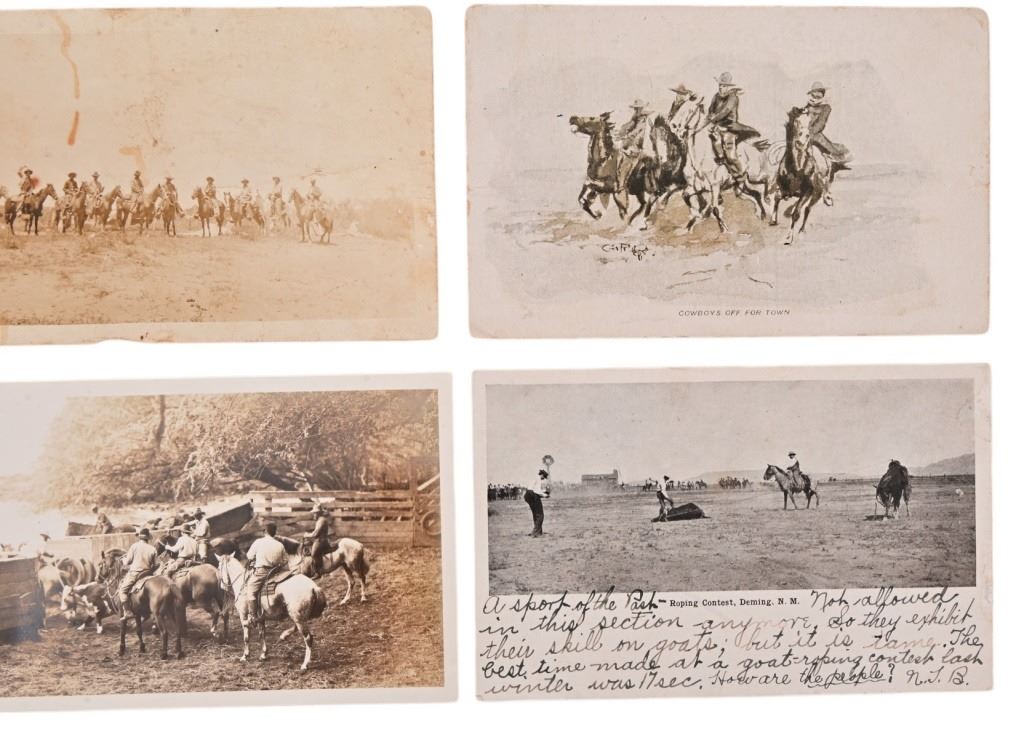 COWBOYS OFF FOR TOWN
A sport of the Past- Roping Contest, Deming, N. M. Not allowed
in this section anymore, so they exhibit
their skill on goats; but it is tame. The
best time made at a goat-roping contest last
winter was 17 sec. How are the people? N.S.B.